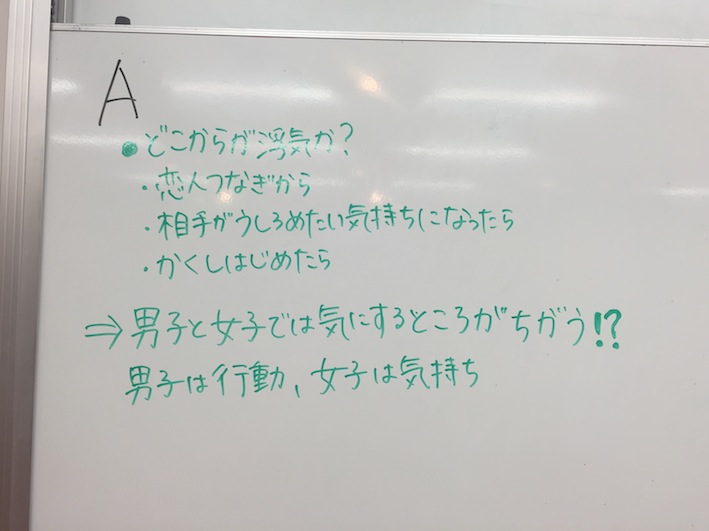 A
●どこからが浮気か?
・恋人つなぎから
・相手がうしろめたい気持ちになったら
・かくしはじめたら
⇒男子と女子では気にするところがちがう!?
男子は行動、女子は気持ち